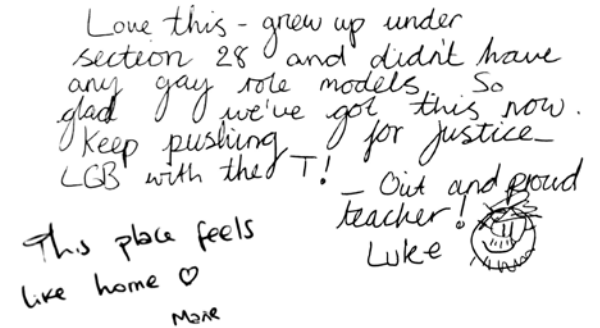 Love this - grew up under
section 28 and didn't have
any gay role models. So
glad we've got this now.
Keep pushing for justice -
LGB with the T!
- Out and proud
teacher!
Luke
This place feels
like home ♡
Marie